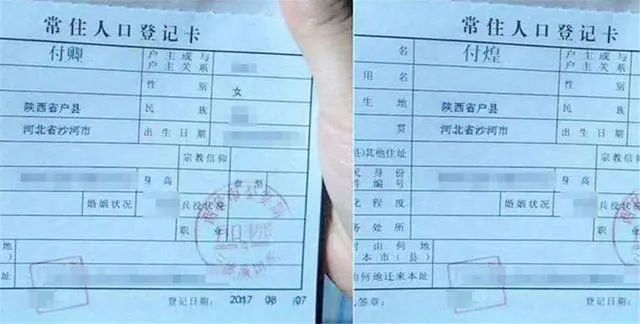 常住人口登记卡
付卿 户主或与
户主关系
性别 女
陕西省户县 民族
河北省沙河市 出生日期
宗教信仰
身高 血型
婚姻状况 兵役状况
职业
登记日期: 2017 08 07
常住人口登记卡
名 付煌 户主或与
户主关系
用名 性别
生地 陕西省户县 民族
贯 河北省沙河市 出生日期
县)其他住址
民身份
件编号 身高
化程度 婚姻状况
务处所
时由何地
本市(县)
何地迁来本址
签章: 登记日期: